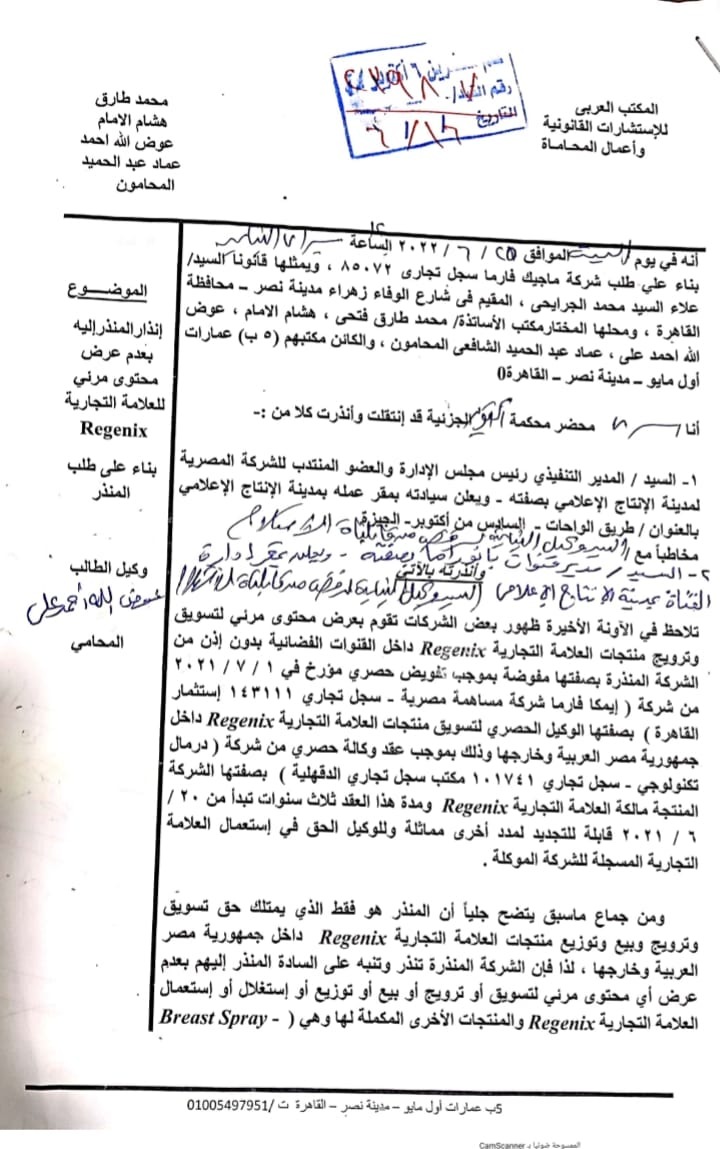 المكتب العربى
للإستشارات القانونية
وأعمال المحاماة
محمد طارق
هشام الامام
عوض الله احمد
عماد عبد الحميد
المحامون
رقم
التاريخ
أنه في يوم السبت الموافق ٢٥ / ٦ / ٢٠٢٢ الساعة
بناء علي طلب شركة ماجيك فارما سجل تجارى ٨٥٠٧٢ ، ويمثلها قانونا السيد/
علاء السيد محمد الجرايحى ، المقيم فى شارع الوفاء زهراء مدينة نصر – محافظة
القاهرة ، ومحلها المختارمكتب الأساتذة/ محمد طارق فتحى ، هشام الامام ، عوض
الله احمد على ، عماد عبد الحميد الشافعى المحامون ، والكائن مكتبهم (٥ ب) عمارات
أول مايو – مدينة نصر – القاهرة0
أنا محضر محكمة الجزئية قد إنتقلت وأنذرت كلا من :-
١- السيد / المدير التنفيذي رئيس مجلس الإدارة والعضو المنتدب للشركة المصرية
لمدينة الإنتاج الإعلامي بصفته - ويعلن سيادته بمقر عمله بمدينة الإنتاج الإعلامي
بالعنوان / طريق الواحات – السادس من أكتوبر- الجيزة.
مخاطباً مع /
٢- السيد / مدير قنوات بانوراما بصفته - ويعلن بمقر ادارة
القناة بمدينة الانتاج الإعلامي
وأنذرته بالآتي
تلاحظ في الآونة الأخيرة ظهور بعض الشركات تقوم بعرض محتوى مرئي لتسويق
وترويج منتجات العلامة التجارية Regenix داخل القنوات الفضائية بدون إذن من
الشركة المنذرة بصفتها مفوضة بموجب تفويض حصري مؤرخ في ١ / ٧ / ٢٠٢١
من شركة ( إيمكا فارما شركة مساهمة مصرية - سجل تجاري ١٤٣١١١ إستثمار
القاهرة ) بصفتها الوكيل الحصري لتسويق منتجات العلامة التجارية Regenix داخل
جمهورية مصر العربية وخارجها وذلك بموجب عقد وكالة حصري من شركة ( درمال
تكنولوجي - سجل تجاري ١٠١٧٤١ مكتب سجل تجاري الدقهلية ) بصفتها الشركة
المنتجة مالكة العلامة التجارية Regenix ومدة هذا العقد ثلاث سنوات تبدأ من ٢٠ /
٦ / ٢٠٢١ قابلة للتجديد لمدد أخرى مماثلة وللوكيل الحق في إستعمال العلامة
التجارية المسجلة للشركة الموكلة .
ومن جماع ماسبق يتضح جلياً أن المنذر هو فقط الذي يمتلك حق تسويق
وترويج وبيع وتوزيع منتجات العلامة التجارية Regenix داخل جمهورية مصر
العربية وخارجها ، لذا فإن الشركة المنذرة تنذر وتنبه على السادة المنذر إليهم بعدم
عرض أي محتوى مرئي لتسويق أو ترويج أو بيع أو توزيع أو إستغلال أو إستعمال
العلامة التجارية Regenix والمنتجات الأخرى المكملة لها وهي ( Breast Spray -
الموضـــوع
إنذار المنذر إليه
بعدم عرض
محتوى مرئي
للعلامة التجارية
Regenix
بناء على طلب
المنذر
وكيل الطالب
عوض الله احمد على
المحامي
5ب عمارات أول مايو – مدينة نصر – القاهرة ت /01005497951
الممسوحة ضوئيا بـ CamScanner